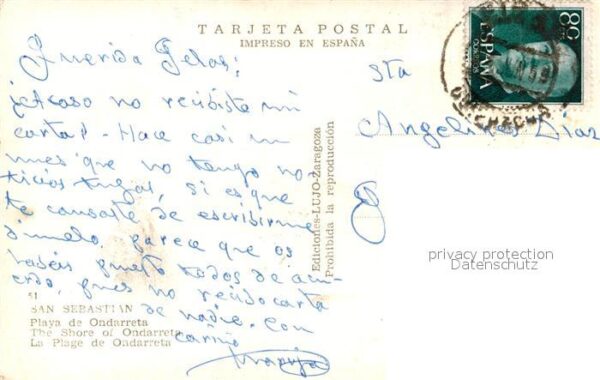 TARJETA POSTAL
IMPRESO EN ESPAÑA
80
CTS
ESPAÑA
CORREOS
Querida Pelos:
¿Acaso no recibiste mi
carta? - Hace casi un
mes que no tengo no-
ticias tuyas, si es que
te cansaste de escribirme
dimelo, parece que os
habéis puesto todos de acu-
erdo, pues no recibo carta
de nadie. Con
cariño
Maruja
Sta
Angelines Díaz
Ediciones-LUJO-Zaragoza
Prohibida la reproducción
51
SAN SEBASTIAN
Playa de Ondarreta
The Shore of Ondarreta
La Plage de Ondarreta
privacy protection
Datenschutz